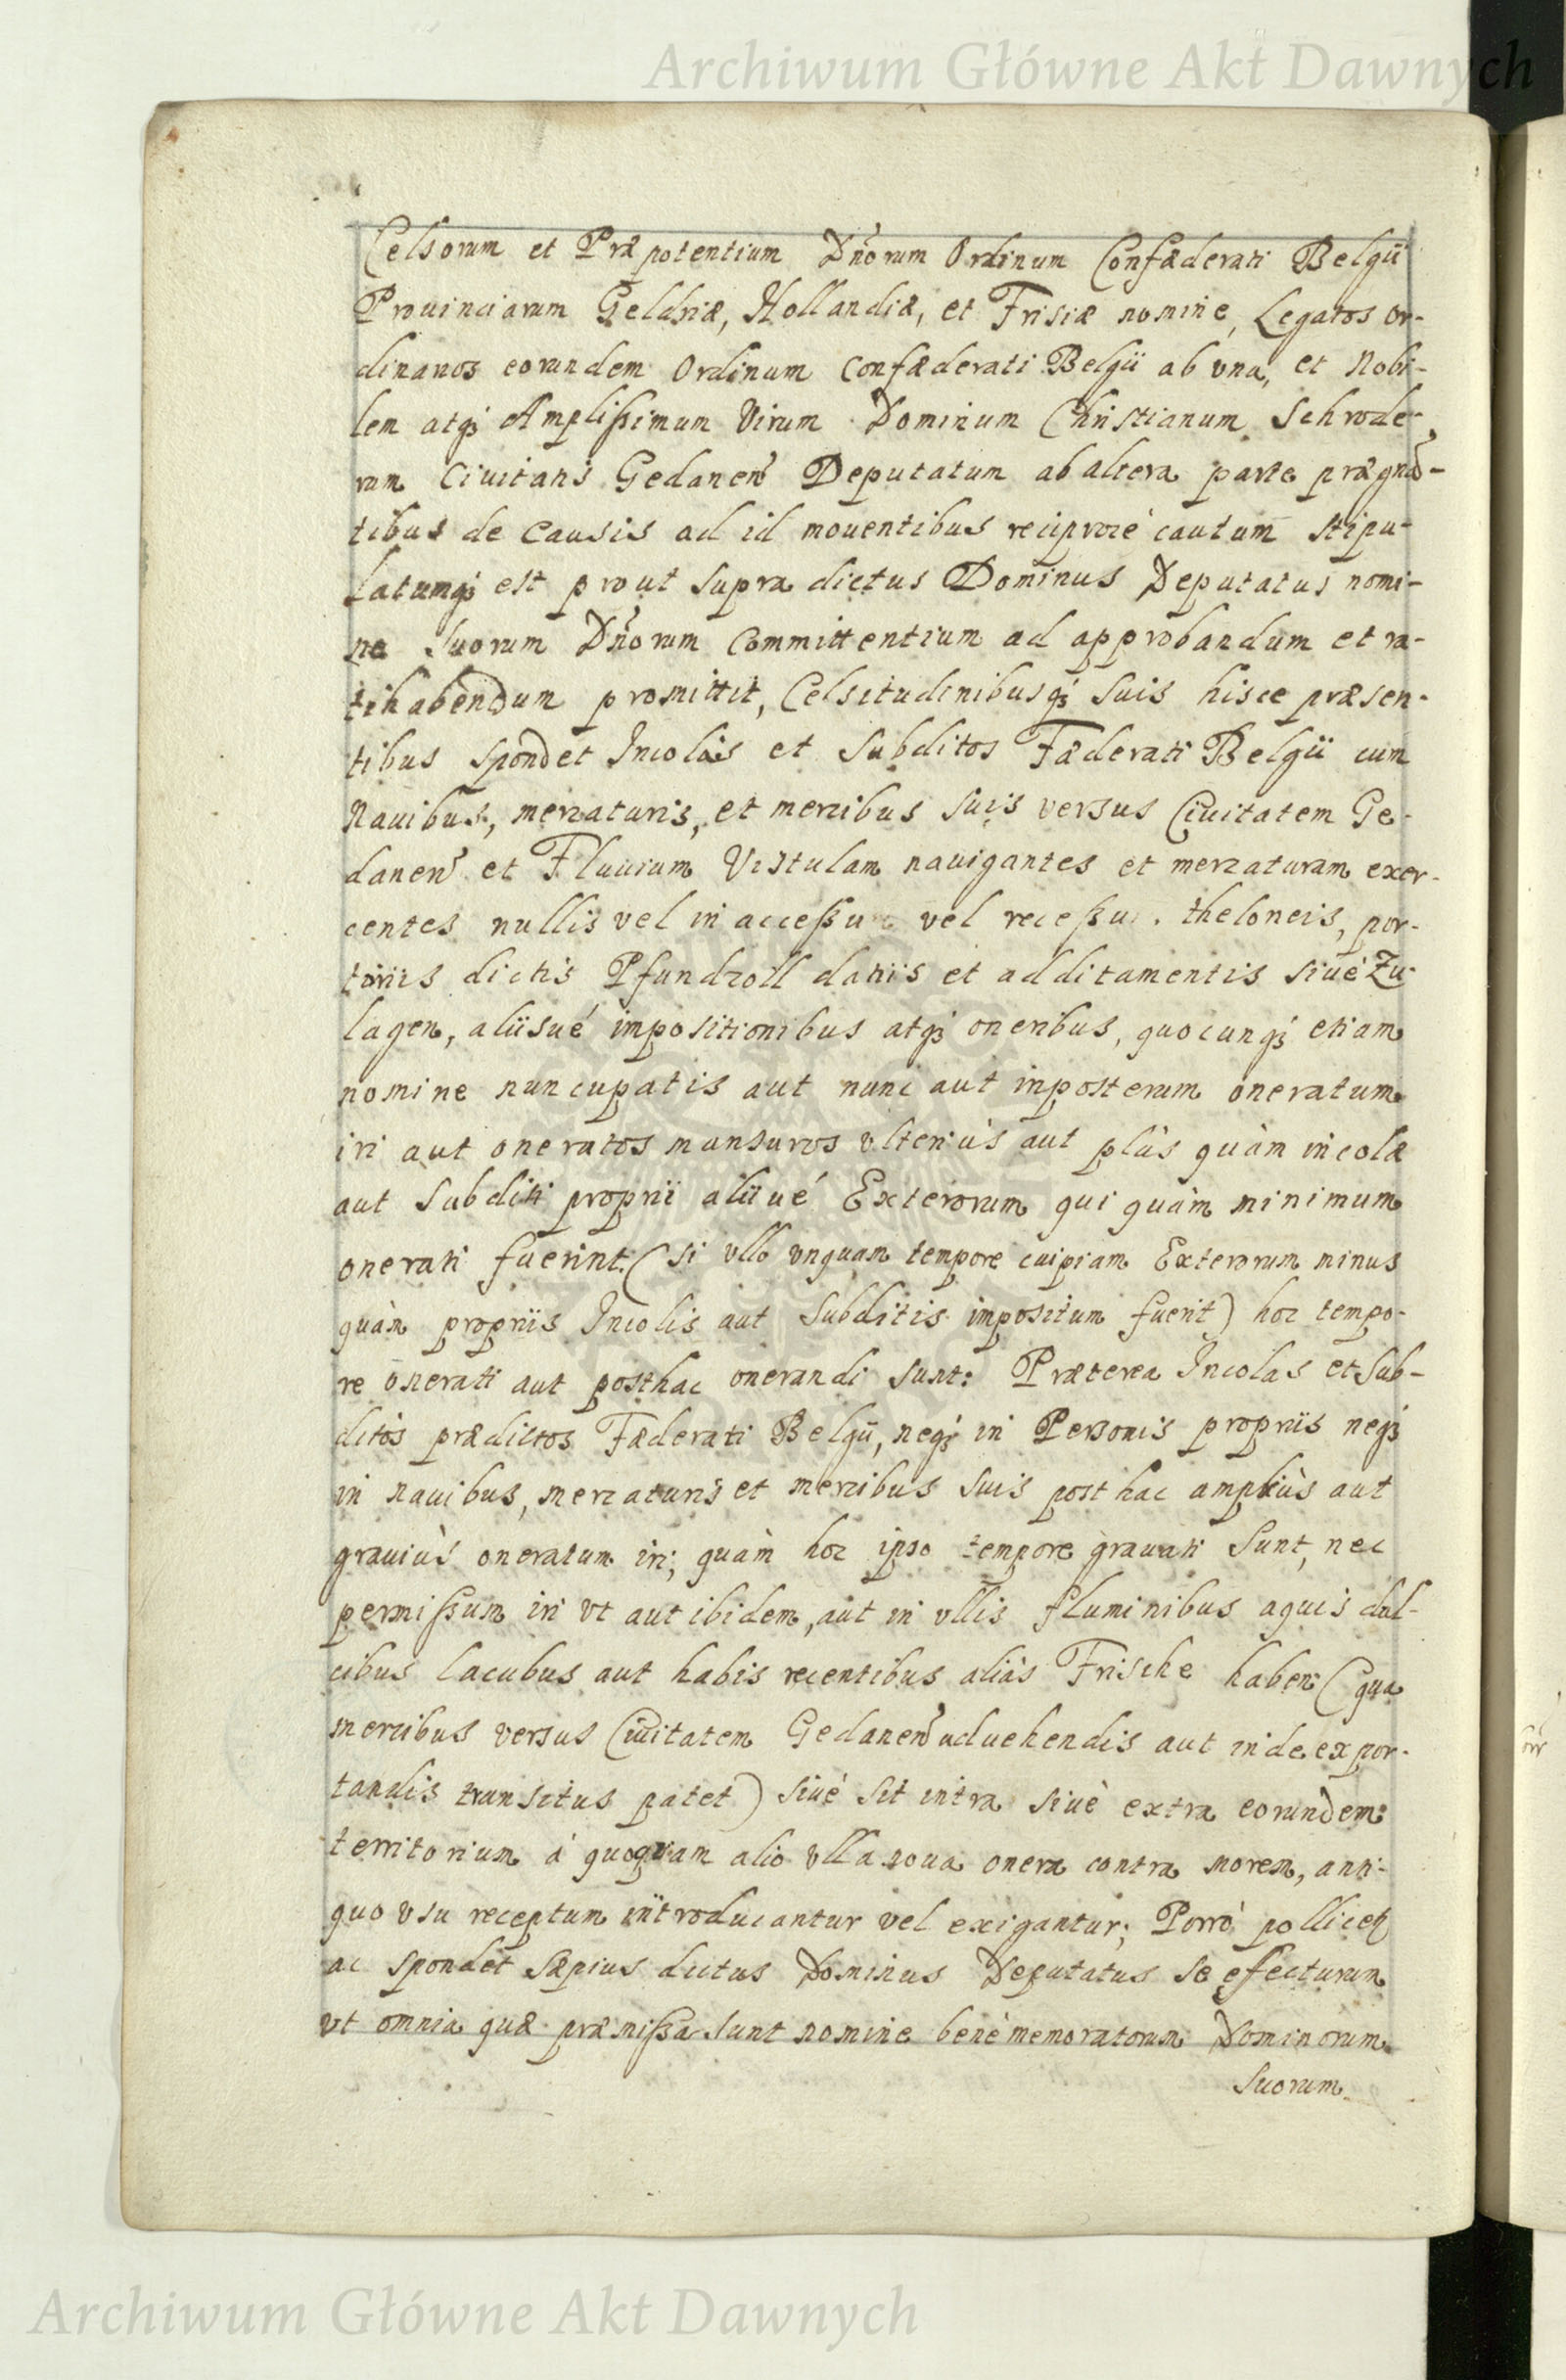 Archiwum Główne Akt Dawnych
Celsorum et Præpotentium Dnõrum Ordinum Confæderati Belgii
Prouinciarum Geldriæ, Hollandiæ, et Frisiæ nomine, Legatos or-
dinarios eorundem Ordinum Confæderati Belgii ab vna, et Nobi-
lem atqȝ Amplißimum Virum Dominum Christianum Schrode-
rum Ciuitatis Gedanen̄ Deputatum ab altera parte prægnã-
tibus de Causis ad id mouentibus reciprocè cautum stipu-
latumqȝ est prout supra dictus Dominus Deputatus nomi-
ne suorum Dnõrum Committentium ad approbandum et ra-
tihabendum promittit, Celsitudinibusqȝ suis hisce præsen-
tibus spondet Incolas et Subditos Fæderati Belgii cum
Nauibus, mercaturis, et mercibus suis versus Ciuitatem Ge-
danen̄ et Fluuium Vistulam nauigantes et mercaturam exer-
centes nullis vel in accessu vel recessu theloneis, por-
torijs dictis Pfundzoll datiis et additamentis siuè Zu-
lagen, aliisué impositionibus atqȝ oneribus, quocunqȝ etiam
nomine nuncupatis aut nunc aut inposterum oneratum
iri aut oneratos mansuros vlteriùs aut plùs quàm incolæ
aut Subditi proprii aliiué Exterorum qui quàm minimum
onerati fuerint: (si vllo vnquam tempore cuipiam Exterorum minus
quàm propriis Incolis aut Subditis impositum fuerit) hoc tempo-
re onerati aut posthac onerandi sunt: Præterea Incolas et Sub-
ditos prædictos Fæderati Belgii, neqȝ in Personis propriis neqȝ
in nauibus, mercaturis et mercibus suis post hac ampliùs aut
grauiùs oneratum iri; quàm hoc ipso tempore grauati sunt, nec
permißum iri vt aut ibidem, aut in vllis fluminibus aquis dul-
cibus lacubus aut habis recentibus aliàs Frische haben (qua
mercibus versus Ciuitatem Gedanen̄ aduehendis aut inde expor-
tandis transitus patet) siuè sit intra siuè extra eorundem
territorium à quoquam alio vlla noua onera contra morem, anti-
quo vsu receptum introducantur vel exigantur; Porrò pollicet̃
ac spondet sæpius dictus Dominus Deputatus se effecturum
vt omnia quæ præmißa sunt nomine benè memoratorum Dominorum
suorum
Archiwum Główne Akt Dawnych